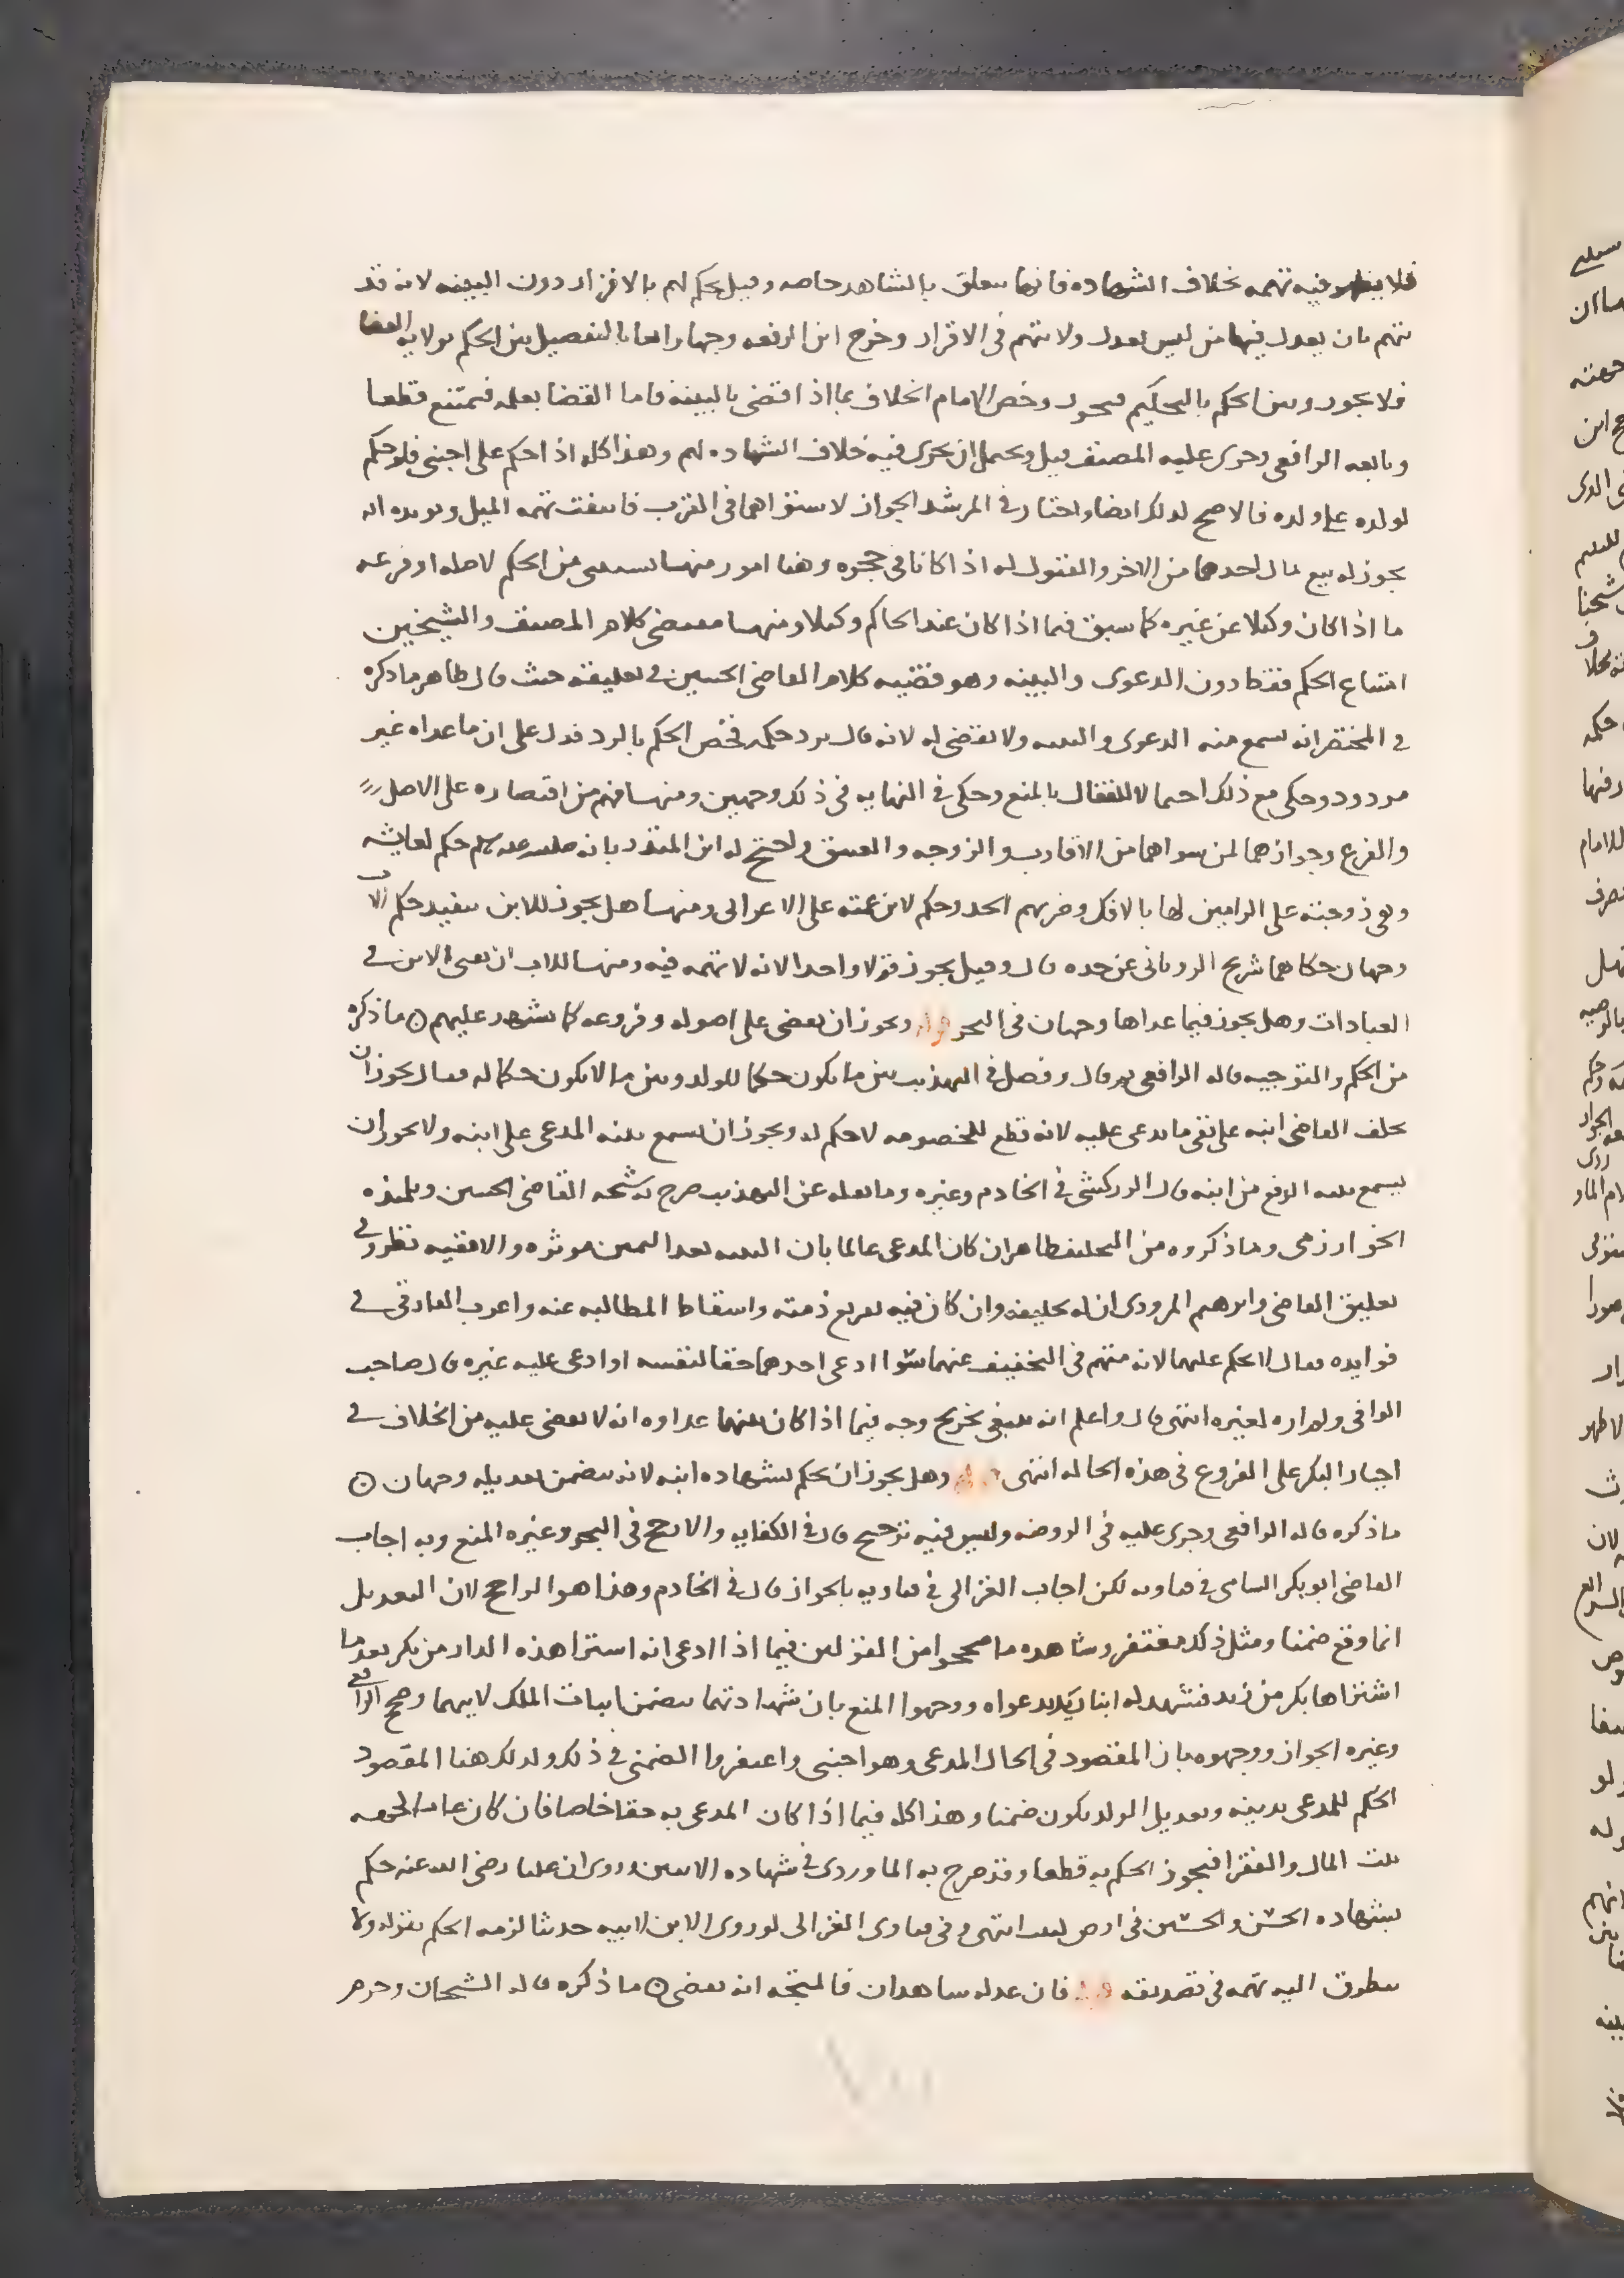 فلا يظهر فيه تهمه بخلاف الشهاده فانها تتعلق بالشاهد خاصه وقيل يحكم لهم بالاقرار دون البينه لانه قد
يتهم بان يعدل فيها من ليس بعدل ولا يتهم في الاقرار وخرج ابن الرفعه وجها رابعا بالتفصيل بين الحكم بولايه القضا
فلا يجوز وبين الحكم بالتحكيم فيجوز وخص الامام الخلاف بما اذا قضى بالبينه فاما القضا بعلمه فيمتنع قطعا
وتابعه الرافعي وجرى عليه المصنف قيل ويحتمل ان يجرى فيه خلاف الشهاده لهم وهذا كله اذا حكم على اجنبي فلو حكم
لولده على ولده فالاصح لذلك ايضا واختار في المرشد الجواز لاستوائهما في القرب فانتفت تهمه الميل ويويده انه
يجوز له بيع مال احدهما من الاخر والقبول له اذا كانا في حجره وهنا امور منها يستثنى من الحكم لاصله او فرعه
ما اذا كان وكيلا عن غيره كما سبق فيما اذا كان عند الحاكم وكيلا ومنها مقتضى كلام المصنف والشيخين
امتناع الحكم فقط دون الدعوى والبينه وهو قضيه كلام القاضي الحسين في تعليقه حيث قال ظاهر ما ذكره
في المختصر انه يسمع منه الدعوى والبينه ولا يقضى له لانه قال يرد حكمه فخص الحكم بالرد فدل على ان ما عداه غير
مردود وحكى مع ذلك احتمالا للقفال بالمنع وحكى في النهايه في ذلك وجهين ومنها فهم من اقتصاره على الاصل
والفرع وجوازهما لمن سواهما من الاقارب والزوجه والعتيق واحتج له ابن المنذر بانه صلى الله عليه وسلم حكم لعايشه
وهي زوجته على الرامين لها بالافك وضربهم الحد وحكم لابن عمته على الاعرابي ومنها هل يجوز للابن تنفيذ حكم الاب
وجهان حكاهما شريح الروياني عن جده قال وقيل يجوز قولا واحدا لانه لا تهمه فيه ومنها للاب ان يعصى الابن في
العبادات وهل يجوز فيما عداها وجهان في البحر قوله ويجوز ان يقضى على اصوله وفروعه كما يشهد عليهم ۞ ما ذكره
من الحكم والتوجيه قاله الرافعي ثم قال وفصل في التهذيب بين ما يكون حكما للولد وبين ما لا يكون حكما له فقال يجوز ان
يحلف القاضي ابنه على نفى ما يدعى عليه لانه قطع للخصومه لا حكم له ويجوز ان يسمع بينه المدعى على ابنه ولا يجوز ان
يسمع بينه الدفع من ابنه قال الزركشي في الخادم وغيره وما نقله عن التهذيب صرح به شيخه القاضي الحسين وتلميذه
الخوارزمي وما ذكروه من التحليف ظاهر ان كان المدعى عالما بان البينه بعد اليمين موثره والا ففيه نظر وفي
تعليق القاضي وابرهيم المروذى ان له تحليفه وان كان فيه تفريغ ذمته واسقاط المطالبه عنه واغرب الفارقي في
فوايده فقال الحكم عليهما لانه متهم في التخفيف عنهما سوا ادعى احدهما حقا لنفسه او ادعى عليه غيره قال صاحب
الوافي ولم اره لغيره انتهى قال واعلم انه ينبغي تخريج وجه فيما اذا كان بينهما عداوه انه لا يقضى عليه من الخلاف في
اجبار البكر على الفروع في هذه الحاله انتهى قوله وهل يجوز ان يحكم بشهاده ابنه لانه يتضمن تعديله وجهان ۞
ما ذكره قاله الرافعي وجرى عليه في الروضه وليس فيه ترجيح قال في الكفايه والارجح في البحر وغيره المنع وبه اجاب
القاضي ابو بكر الشامي في فتاويه لكن اجاب الغزالي في فتاويه بالجواز قال في الخادم وهذا هو الراجح لان التعديل
انما وقع ضمنا ومثل ذلك مغتفر وشاهده ما صححوا من القولين فيما اذا ادعى انه اشترا هذه الدار من بكر بعد ما
اشتراها بكر من زيد فشهد له ابنا زيد بدعواه ووجهوا المنع بان شهادتهما يتضمن اثبات الملك لابيهما وصحح الرافعي
وغيره الجواز ووجهوه بان المقصود في الحال المدعى وهو اجنبي واغتفروا الضمني في ذلك ولذلك هنا المقصود
الحكم للمدعى ببينه وتعديل الولد يكون ضمنا وهذا كله فيما اذا كان المدعى به حقا خاصا فان كان عاما لجهه
بيت المال والفقرا فيجوز الحكم به قطعا وقد صرح به الماوردى في شهاده الابنين وروى ان عليا رضى الله عنه حكم
بشهاده الحسن والحسين في ارض انتهى وفي فتاوى الغزالي لو روى الابن لابيه حديثا لزمه الحكم بقوله ولا
يتطرق اليه تهمه في تصديقه قوله فان عدله شاهدان فالمتجه انه يقضى ۞ ما ذكره قاله الشيخان وجزم